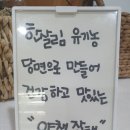 한살림 유기농
당면으로 만들어
건강하고 맛있는
"야채 잡채"